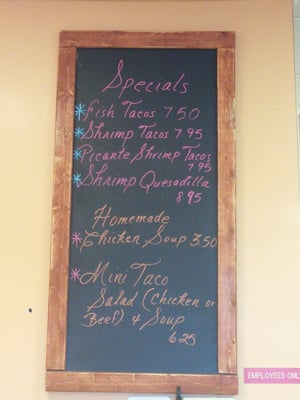 Specials
*Fish Tacos 7.50
*Shrimp Tacos 7.95
*Picante Shrimp Tacos
7.95
*Shrimp Quesadilla
8.95
Homemade
*Chicken Soup 3.50
*Mini Taco
Salad (Chicken or
Beef) & Soup
6.25
EMPLOYEES ONL